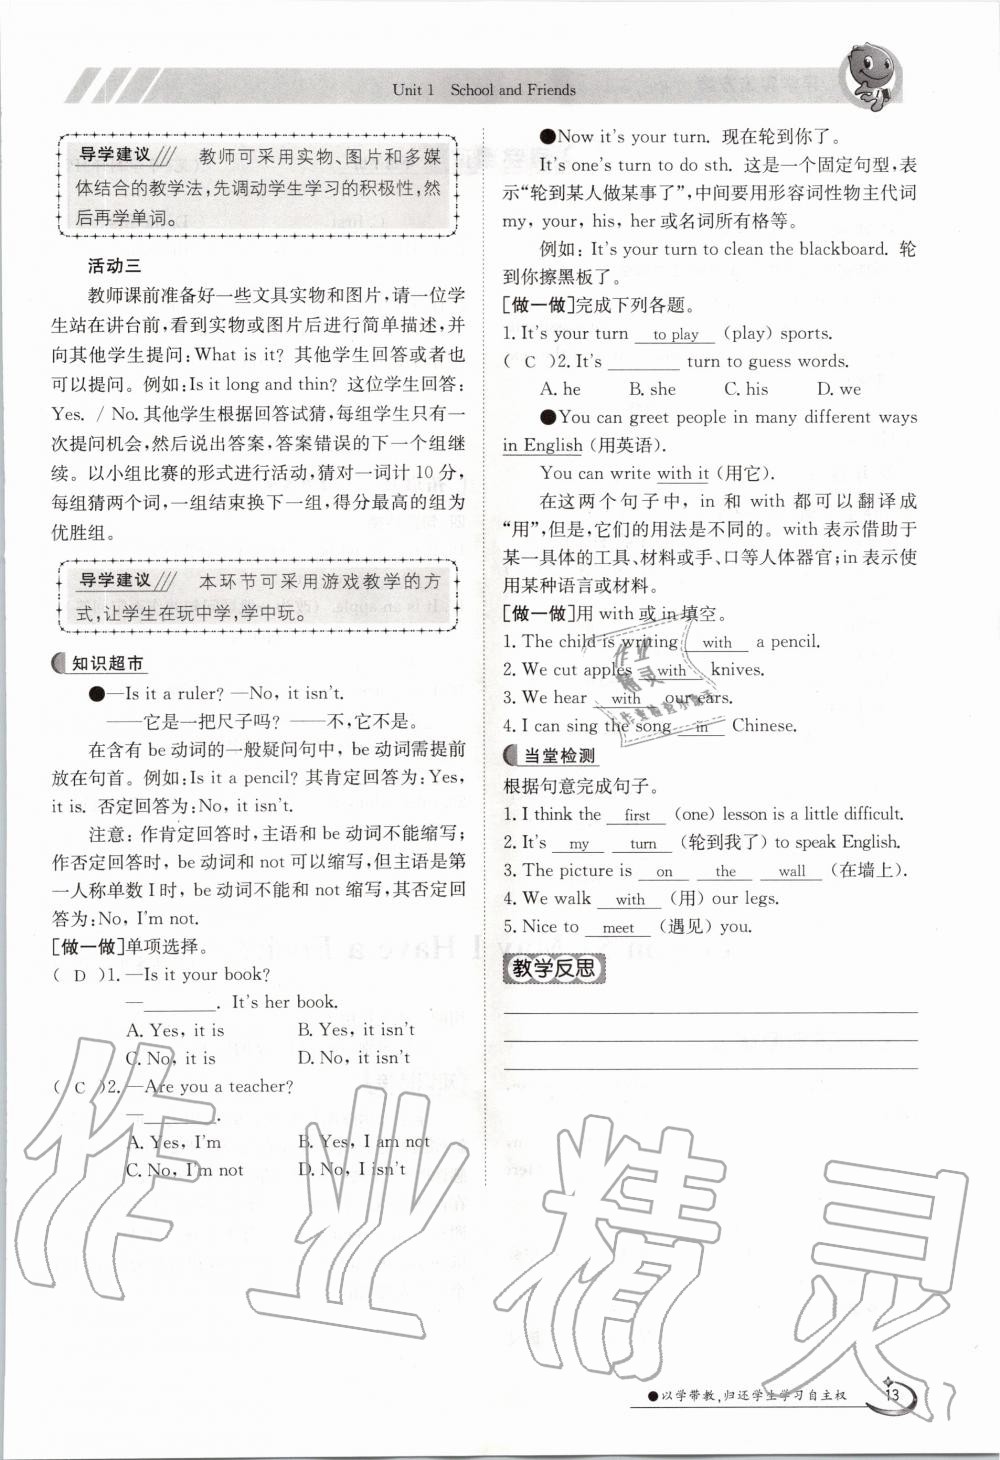 Unit 1 School and Friends
导学建议 教师可采用实物、图片和多媒
体结合的教学法,先调动学生学习的积极性,然
后再学单词。
活动三
教师课前准备好一些文具实物和图片,请一位学
生站在讲台前,看到实物或图片后进行简单描述,并
向其他学生提问:What is it? 其他学生回答或者也
可以提问。例如:Is it long and thin? 这位学生回答:
Yes. / No. 其他学生根据回答试猜,每组学生只有一
次提问机会,然后说出答案,答案错误的下一个组继
续。以小组比赛的形式进行活动,猜对一词计 10 分,
每组猜两个词,一组结束换下一组,得分最高的组为
优胜组。
导学建议 本环节可采用游戏教学的方
式,让学生在玩中学,学中玩。
知识超市
●—Is it a ruler? —No, it isn't.
——它是一把尺子吗? ——不,它不是。
在含有 be 动词的一般疑问句中, be 动词需提前
放在句首。例如:Is it a pencil? 其肯定回答为:Yes,
it is. 否定回答为:No, it isn't.
注意: 作肯定回答时,主语和 be 动词不能缩写;
作否定回答时, be 动词和 not 可以缩写,但主语是第
一人称单数 I 时, be 动词不能和 not 缩写,其否定回
答为:No, I'm not.
[做一做]单项选择。
( D )1. —Is it your book?
—________. It's her book.
A. Yes, it is B. Yes, it isn't
C. No, it is D. No, it isn't
( C )2. —Are you a teacher?
—________.
A. Yes, I'm B. Yes, I am not
C. No, I'm not D. No, I isn't
●Now it's your turn. 现在轮到你了。
It's one's turn to do sth. 这是一个固定句型,表
示“轮到某人做某事了”,中间要用形容词性物主代词
my, your, his, her 或名词所有格等。
例如: It's your turn to clean the blackboard. 轮
到你擦黑板了。
[做一做]完成下列各题。
1. It's your turn to play (play) sports.
( C )2. It's ________ turn to guess words.
A. he B. she C. his D. we
●You can greet people in many different ways
in English (用英语).
You can write with it (用它).
在这两个句子中, in 和 with 都可以翻译成
“用”,但是,它们的用法是不同的。with 表示借助于
某一具体的工具、材料或手、口等人体器官;in 表示使
用某种语言或材料。
[做一做]用 with 或 in 填空。
1. The child is writing with a pencil.
2. We cut apples with knives.
3. We hear with our ears.
4. I can sing the song in Chinese.
当堂检测
根据句意完成句子。
1. I think the first (one) lesson is a little difficult.
2. It's my turn (轮到我了) to speak English.
3. The picture is on the wall (在墙上).
4. We walk with (用) our legs.
5. Nice to meet (遇见) you.
教学反思
●以学带教,归还学生学习自主权
13
作业精灵